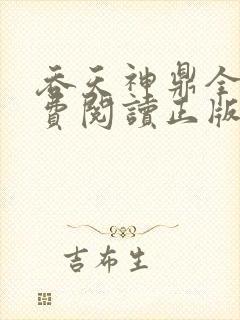 吞天神鼎全
費閱讀正版
吉布生